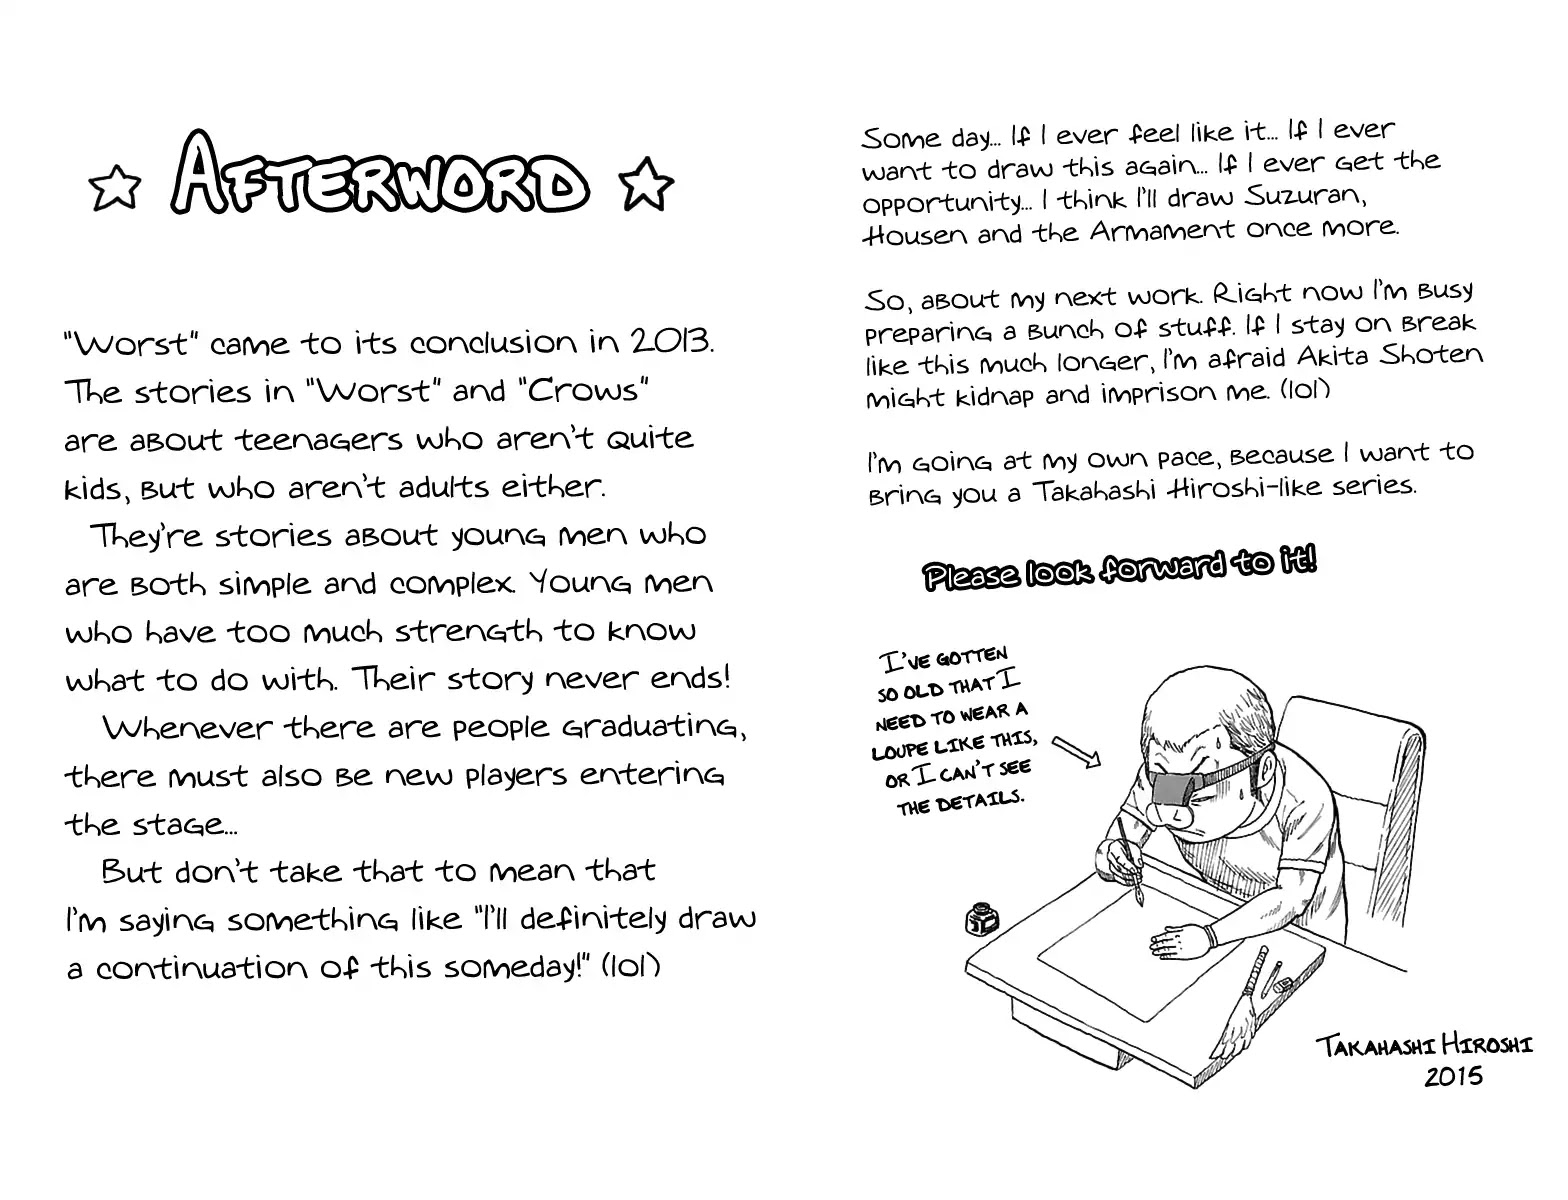 Afterword
"Worst" came to its conclusion in 2013.
The stories in "Worst" and "Crows"
are about teenagers who aren't quite
kids, but who aren't adults either.
They're stories about young men who
are both simple and complex. Young men
who have too much strength to know
what to do with. Their story never ends!
Whenever there are people graduating,
there must also be new players entering
the stage...
But don't take that to mean that
I'm saying something like "I'll definitely draw
a continuation of this someday!" (lol)
Some day... If I ever feel like it... If I ever
want to draw this again... If I ever get the
opportunity... I think I'll draw Suzuran,
Housen and the Armament once more.
So, about my next work. Right now I'm busy
preparing a bunch of stuff. If I stay on break
like this much longer, I'm afraid Akita Shoten
might kidnap and imprison me. (lol)
I'm going at my own pace, because I want to
bring you a Takahashi Hiroshi-like series.
Please look forward to it!
I've gotten
so old that I
need to wear a
loupe like this,
or I can't see
the details.
Takahashi Hiroshi
2015